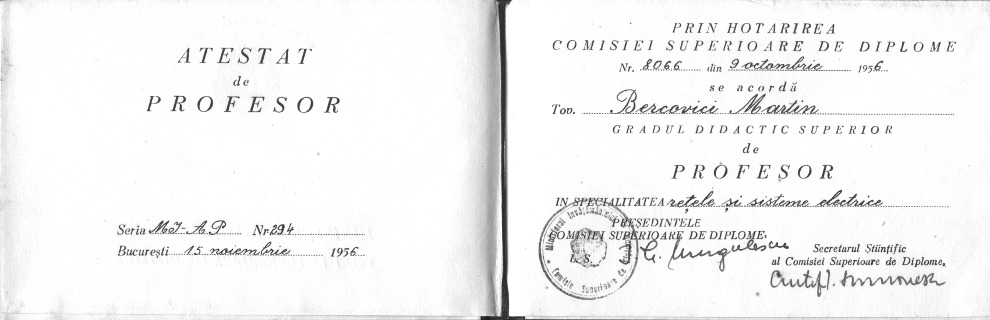 ATESTAT
de
PROFESOR
Seria MI-A.P. Nr 294
București 15 noiembrie 1956
PRIN HOTARIREA
COMISIEI SUPERIOARE DE DIPLOME
Nr. 8066 din 9 octombrie 1956
se acordă
Tov. Bercovici Martin
GRADUL DIDACTIC SUPERIOR
de
PROFESOR
IN SPECIALITATEA rețele și sisteme electrice
PREȘEDINTELE
COMISIEI SUPERIOARE DE DIPLOME,
L. S.
Secretarul Stiințific
al Comisiei Superioare de Diplome,